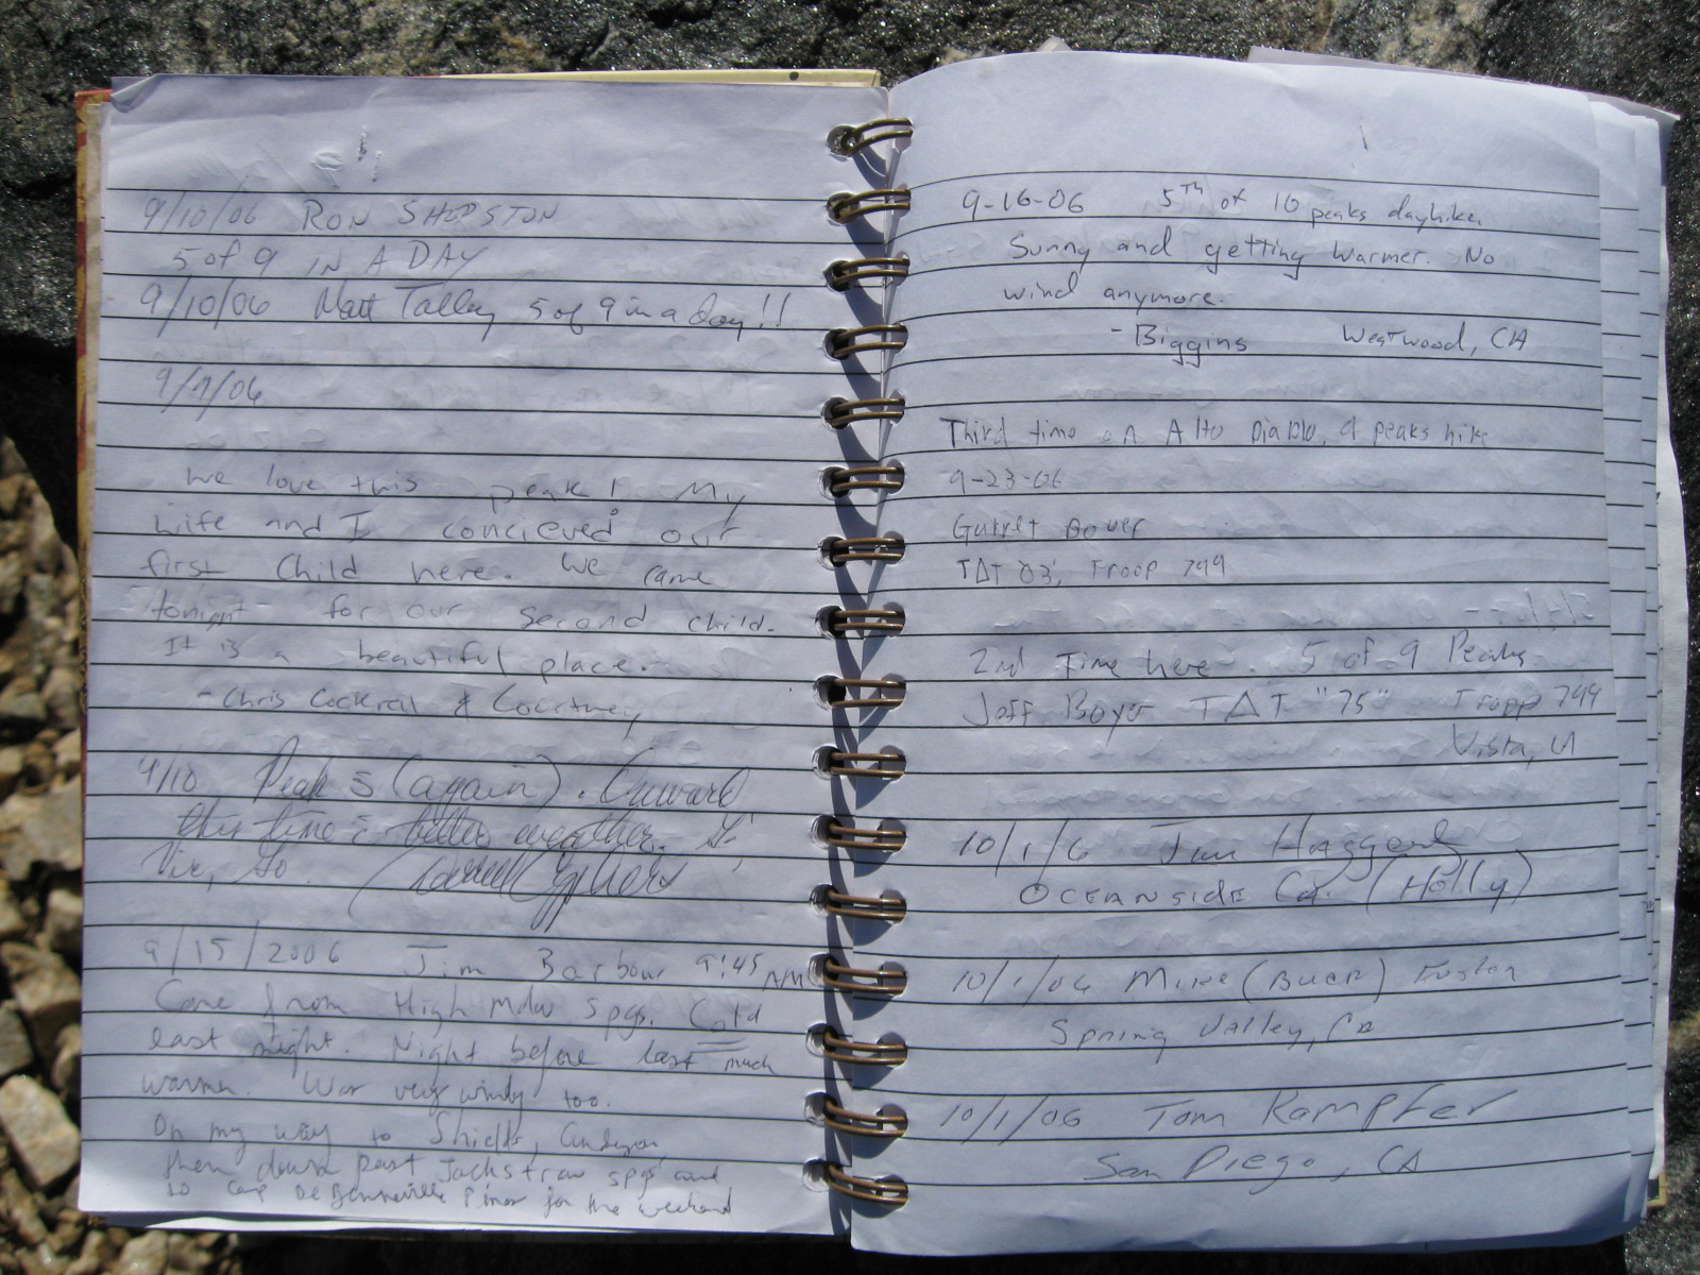 9/10/06 RON SHEPSTON
5 of 9 IN A DAY
9/10/06 Matt Talley 5 of 9 in a day!!
9/9/06
We love this peak! My
wife and I concieved our
first child here. We came
tonight for our second child.
It is a beautiful place.
- Chris Cockrell & Courtney
9/10 Peak 5 (again). Onward
this time: better weather.
9/15/2006 Jim Barbour 9:45 AM
Came from High Mdw Spgs. Cold
last night. Night before last much
warmer. Was very windy too.
On my way to Shields, Anderson,
then down past Jackstraw spgs and
to camp De Benneville Pines for the weekend
9-16-06 5th of 10 peaks dayhike.
Sunny and getting warmer. No
wind anymore.
- Biggins Westwood, CA
Third time on Alto Diablo, 9 peaks hike
9-23-06
Garret Boyer
TΔT 03', Troop 799
2nd Time here. 5 of 9 Peaks
Jeff Boyer TΔT "75" Troop 799
Vista, CA
10/1/6 Jim Haggard
OCEANSIDE Ca. (Holly)
10/1/06 MIKE (BUCK)
Spring Valley, CA
10/1/06 Tom Kampfer
San Diego, CA